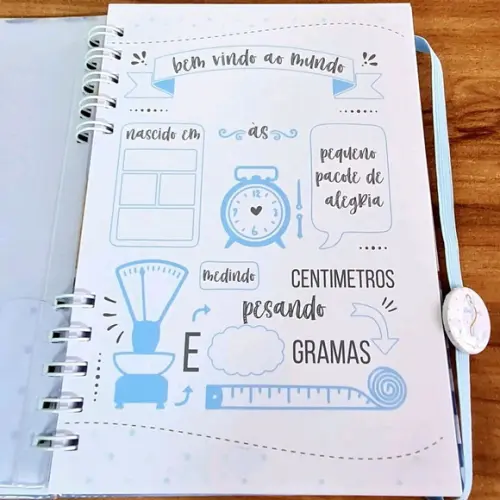 bem vindo ao mundo
nascido em
às
pequeno
pacote de
alegria
medindo
CENTIMETROS
pesando
E
GRAMAS